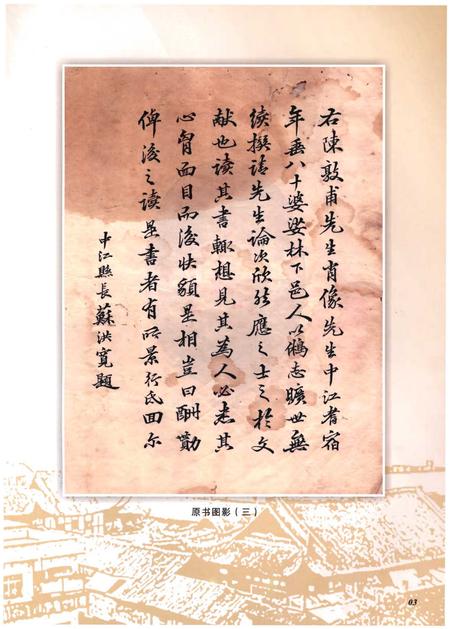 右陳敦甫先生肖像先生中江耆宿
年垂八十婆娑林下邑人以縣志曠世無
續撰請先生論次欣然應之士之於文
献也读其書輒想見其為人必悉其
心胷面目而後快頟是相豈曰酬勳
俾後之读是書者有所景行民回尔
中江縣長蘇洪寬題
原书图影（三）
03